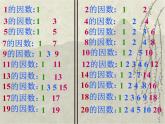 1的因数:1
3的因数:1 3
5的因数:1 5
7的因数:1 7
9的因数:1 3 9
11的因数:1 11
13的因数:1 13
15的因数:1 3 5 15
17的因数:1 17
19的因数:1 19
2的因数:1 2
4的因数:1 2 4
6的因数:1 2 3 6
8的因数:1 2 4 8
10的因数:1 2 5 10
12的因数:1 2 3 4 6 12
14的因数:1 2 7 14
16的因数:1 2 4 8 16
18的因数:1 2 3 6 9 18
20的因数:1 2 4 5 10 20